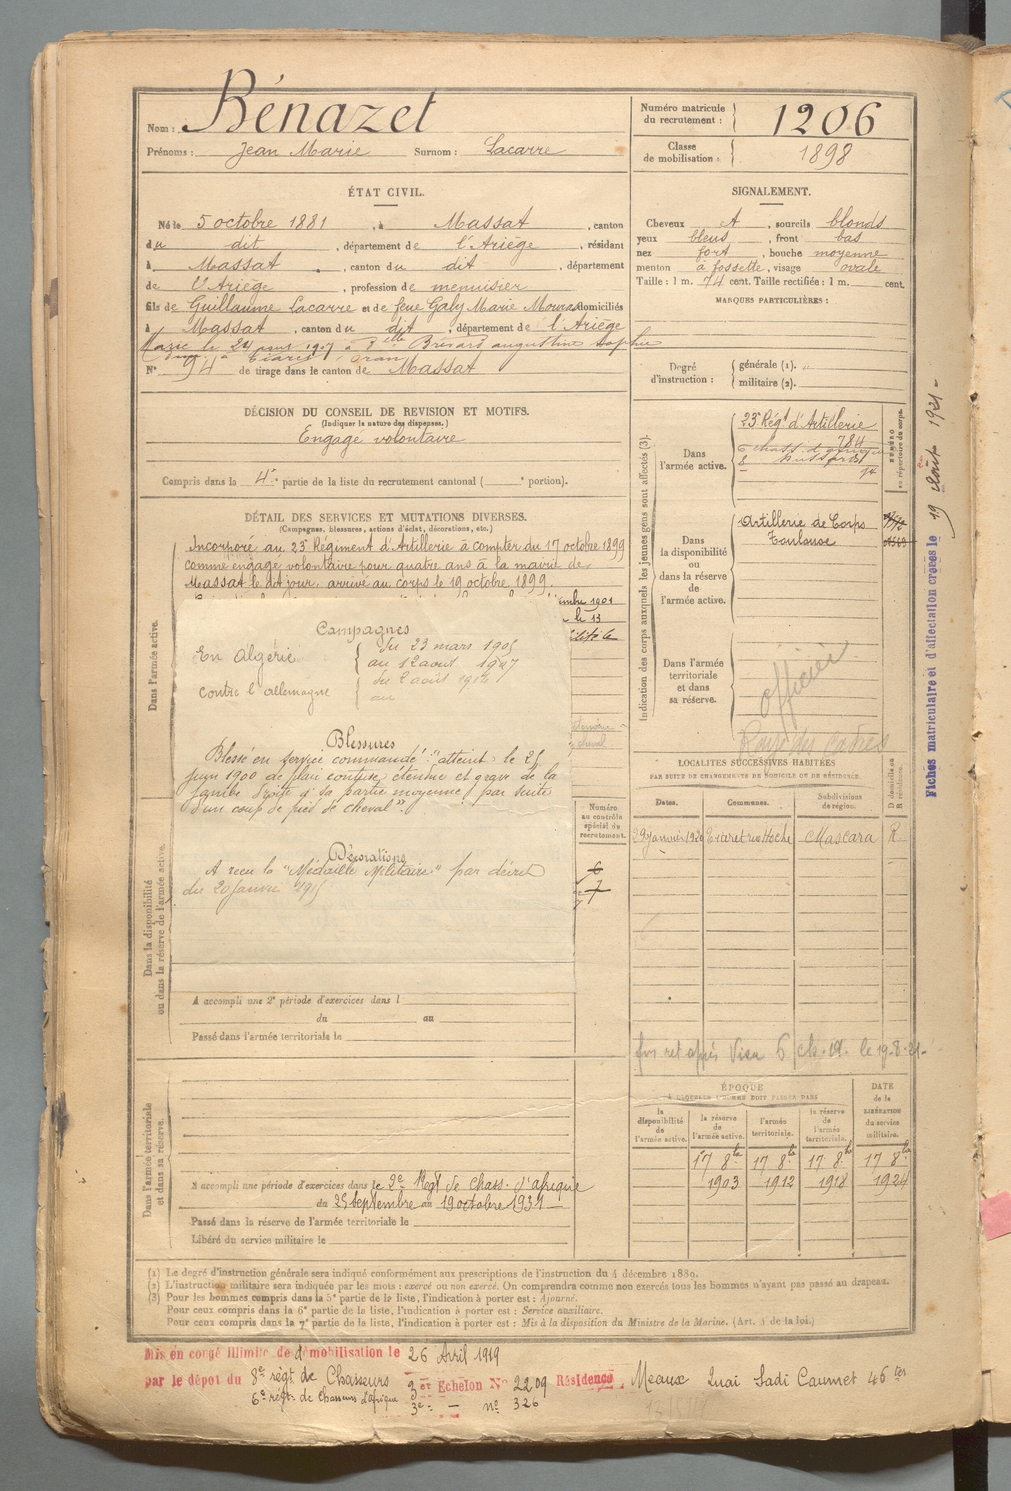 Nom : Bénazet
Prénoms : Jean Marie Surnom : Lacarre
Numéro matricule du recrutement : 1206
Classe de mobilisation : 1898
ÉTAT CIVIL.
Né le 5 octobre 1881, à Massat, canton
du dit, département de l'Ariège, résidant
à Massat, canton du dit, département
de l'Ariège, profession de menuisier
fils de Guillaume Lacarre et de feue Galy Marie domiciliés
à Massat, canton du dit, département de l'Ariège
Marié le 24 1907 à Dlle augustine Sophie
à Tiaret Oran
N° 94 de tirage dans le canton de Massat
SIGNALEMENT.
Cheveux , sourcils blonds
yeux bleus, front bas
nez fort, bouche moyenne
menton à fossette, visage ovale
Taille : 1 m. 74 cent. Taille rectifiée : 1 m. cent.
MARQUES PARTICULIÈRES :
Degré d'instruction : générale (1). militaire (2).
DÉCISION DU CONSEIL DE REVISION ET MOTIFS.
(Indiquer la nature des dispenses.)
Engagé volontaire
Compris dans la 4e partie de la liste du recrutement cantonal ( e portion).
DÉTAIL DES SERVICES ET MUTATIONS DIVERSES.
(Campagnes, blessures, actions d'éclat, décorations, etc.)
Dans l'armée active.
Incorporé au 23e Régiment d'Artillerie à compter du 17 octobre 1899
comme engagé volontaire pour quatre ans à la mairie de
Massat le dit jour. arrivé au corps le 19 octobre 1899.
embre 1901
le 13
Campagnes
En Algérie du 23 mars 1905
au 12 août 1907
contre l'allemagne du 2 août 1914
au
Blessures
Blessé en service commandé : "atteint le 25
juin 1900 de plaie contuse étendue et grave de la
jambe droite à sa partie moyenne, par suite
d'un coup de pied de cheval".
Décorations
A reçu la "Médaille Militaire" par décret
du 20 janvier 1915
Numéro au contrôle spécial du recrutement.
Dans la disponibilité ou dans la réserve de l'armée active.
A accompli une 2e période d'exercices dans l
du au
Passé dans l'armée territoriale le
Dans l'armée territoriale et dans sa réserve.
A accompli une période d'exercices dans le 2e Régt de Chass. d'afrique
du 25 septembre au 19 octobre 1931
Passé dans la réserve de l'armée territoriale le
Libéré du service militaire le
Indication des corps auxquels les jeunes gens sont affectés (3).
Dans l'armée active. 23e Régt d'Artillerie
784
6 chass. d'afrique
8 hussards
NUMÉRO au répertoire du corps.
Dans la disponibilité ou dans la réserve de l'armée active.
Artillerie de Corps
Toulouse
Dans l'armée territoriale et dans sa réserve.
officier
Rayé des cadres
LOCALITÉS SUCCESSIVES HABITÉES
PAR SUITE DE CHANGEMENTS DE DOMICILE OU DE RÉSIDENCE.
Dates. Communes. Subdivisions de région. D domicile ou R résidence.
29 janvier 1920 Tiaret rue Hoche Mascara R.
le 19-8-21-
ÉPOQUE
À LAQUELLE L'HOMME DOIT PASSER DANS
la disponibilité de l'armée active. la réserve de l'armée active. l'armée territoriale. la réserve de l'armée territoriale. DATE de la LIBÉRATION du service militaire.
17 8bre 17 8bre 17 8bre 17 8bre
1903 1912 1918 1924
Fiches matriculaire et d'affectation créées le 19 Août 1921 -
(1) Le degré d'instruction générale sera indiqué conformément aux prescriptions de l'instruction du 4 décembre 1889.
(2) L'instruction militaire sera indiquée par les mots : exercé ou non exercé. On comprendra comme non exercés tous les hommes n'ayant pas passé au drapeau.
(3) Pour les hommes compris dans la 5e partie de la liste, l'indication à porter est : Ajourné.
Pour ceux compris dans la 6e partie de la liste, l'indication à porter est : Service auxiliaire.
Pour ceux compris dans la 7e partie de la liste, l'indication à porter est : Mis à la disposition du Ministre de la Marine. (Art. 4 de la loi.)
Mis en congé illimité de démobilisation le 26 Avril 1919
par le dépôt du 8e régt de Chasseurs 3e Echelon N° 2209 Résidence Meaux Quai Sadi Caumet 46 ter
6e régt de Chasseurs d'afrique 3e — n° 326